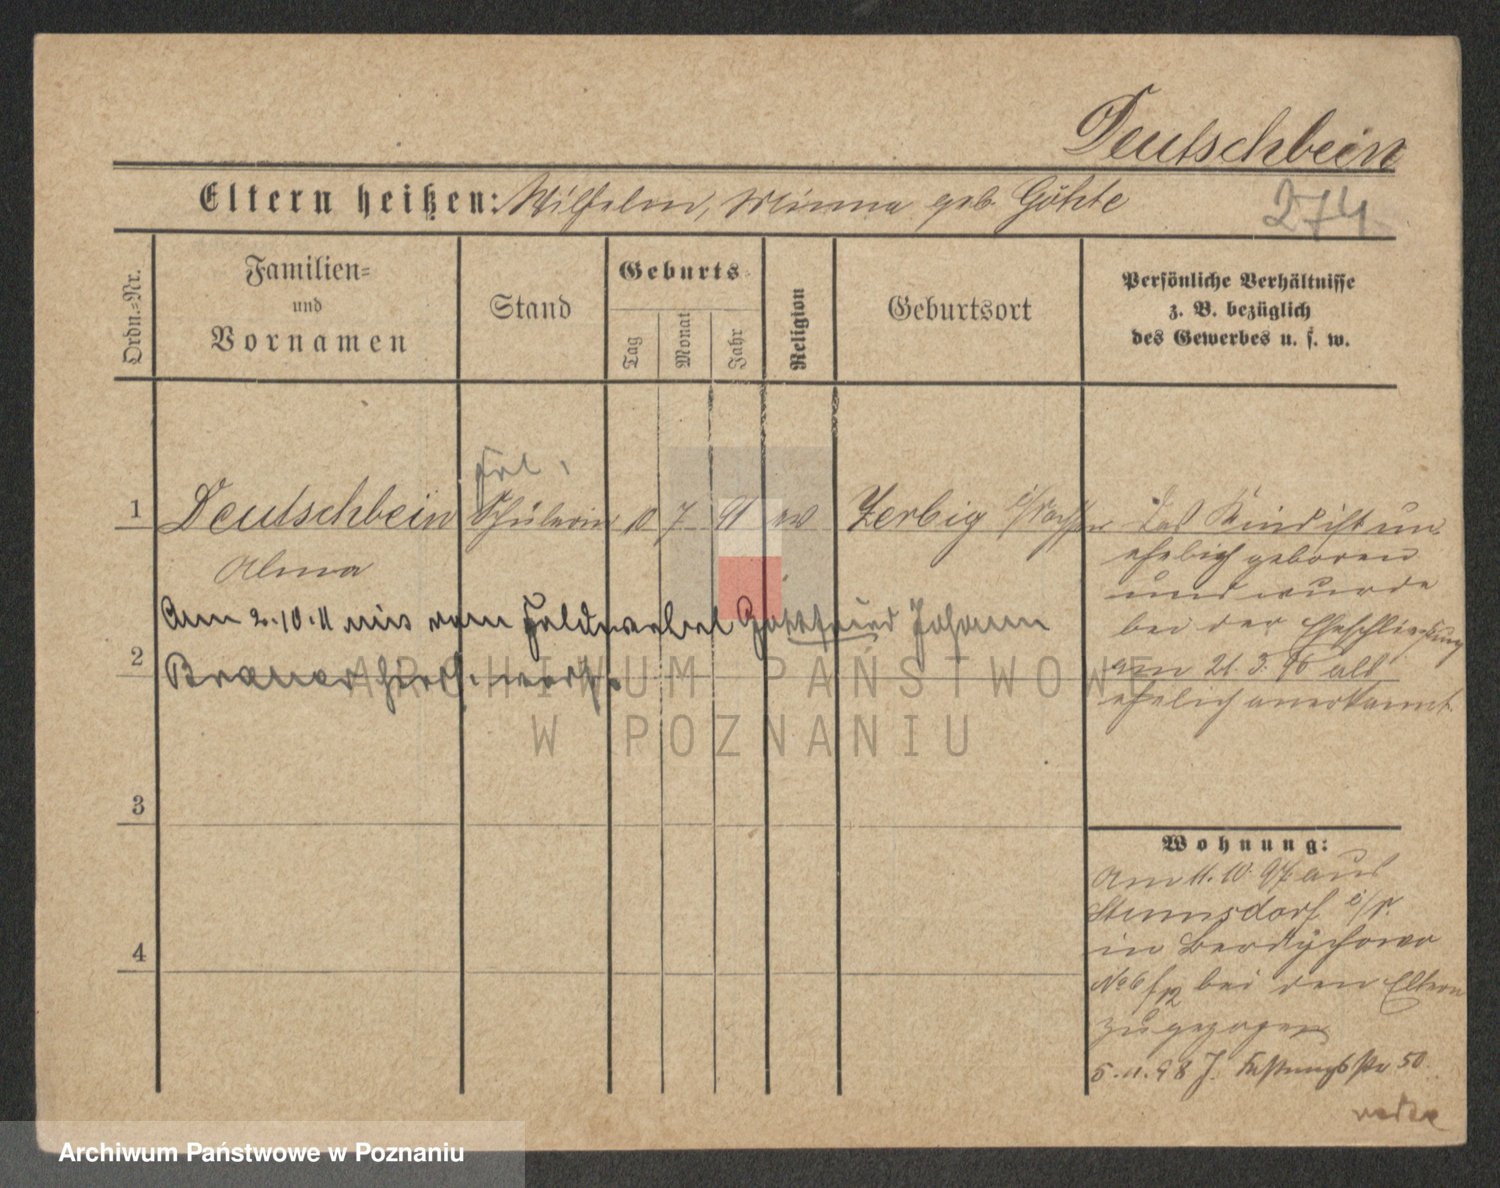 Deutschbein
Eltern heißen: Wilhelm, Minna geb. Göhte
274
Ordn.=Nr.
Familien=
und
Vornamen
Stand
Geburts=
Tag
Monat
Jahr
Religion
Geburtsort
Persönliche Verhältnisse
z. B. bezüglich
des Gewerbes u. s. w.
Frl.
1 Deutschbein Schülerin 10 7 91 ev Zerbig i/Sachsen
Alma
Das Kind ist un-
ehelich geboren
und wurde
bei der Eheschließung
am 21. 3. 96 als
ehelich anerkannt.
Am 2.10.11 mit dem Feldwebel Gottfried Johann
2
verh.
3
4
Wohnung:
Am 11. 10. 97 aus
Stumsdorf
in Berdychowo
No 6 bei den Eltern
zugezogen
5.11.98 J. Festungsstr 50
ARCHIWUM PAŃSTWOWE
W POZNANIU
Archiwum Państwowe w Poznaniu